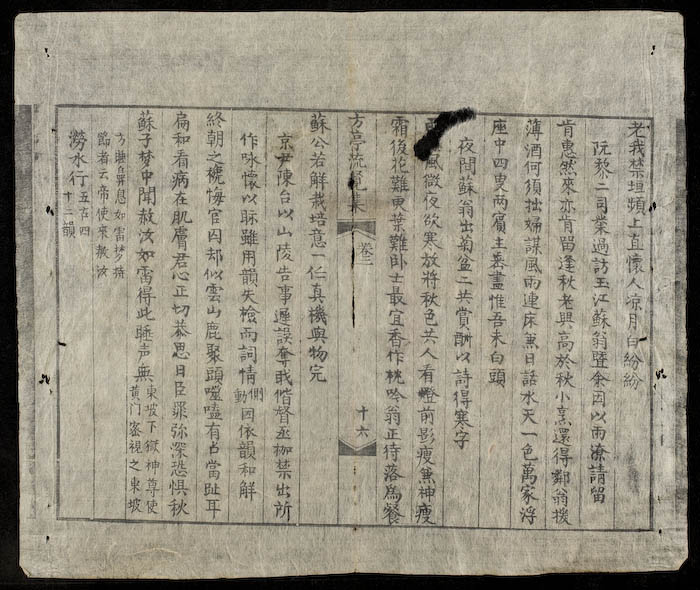 老我禁垣頻上直懷人凉月白紛紛
阮黎二司業過訪玉江蘇翁暨余因以雨潦請留
肯惠然來亦肯留逢秋老興高於秋小烹還得鄰翁援
薄酒何須拙婦謀風雨連床兼日話水天一色萬家浮
座中四叟兩賓主暮盡惟吾未白頭
夜聞蘇翁出菊盆二共賞酬以詩得寒字
風微夜欲寒放將秋色共人看燈前影瘦兼神瘦
霜後花難更葉難卧士最宜香作枕吟翁正待落爲餐
方亭流覽集
卷三
十六
蘇公若解栽培意一任真機與物完
京尹陳台以山陵告事遲誤奪職偕督丞枷禁出所
作咏懷以眎雖用韻失檢而詞情惻動因依韻和解
終朝之褫悔官因却似雲山鹿聚頭噬嗑有占當趾耳
扁和看病在肌膚君心正切恭思日臣罪弥深恐惧秋
蘇子梦中聞赦汝如雷得此睡声無
東坡下獄神尊使
黄门密視之東坡
方睡鼻息如雷梦搖
路者云帝使來赦汝
澇水行
五古四
十二韻